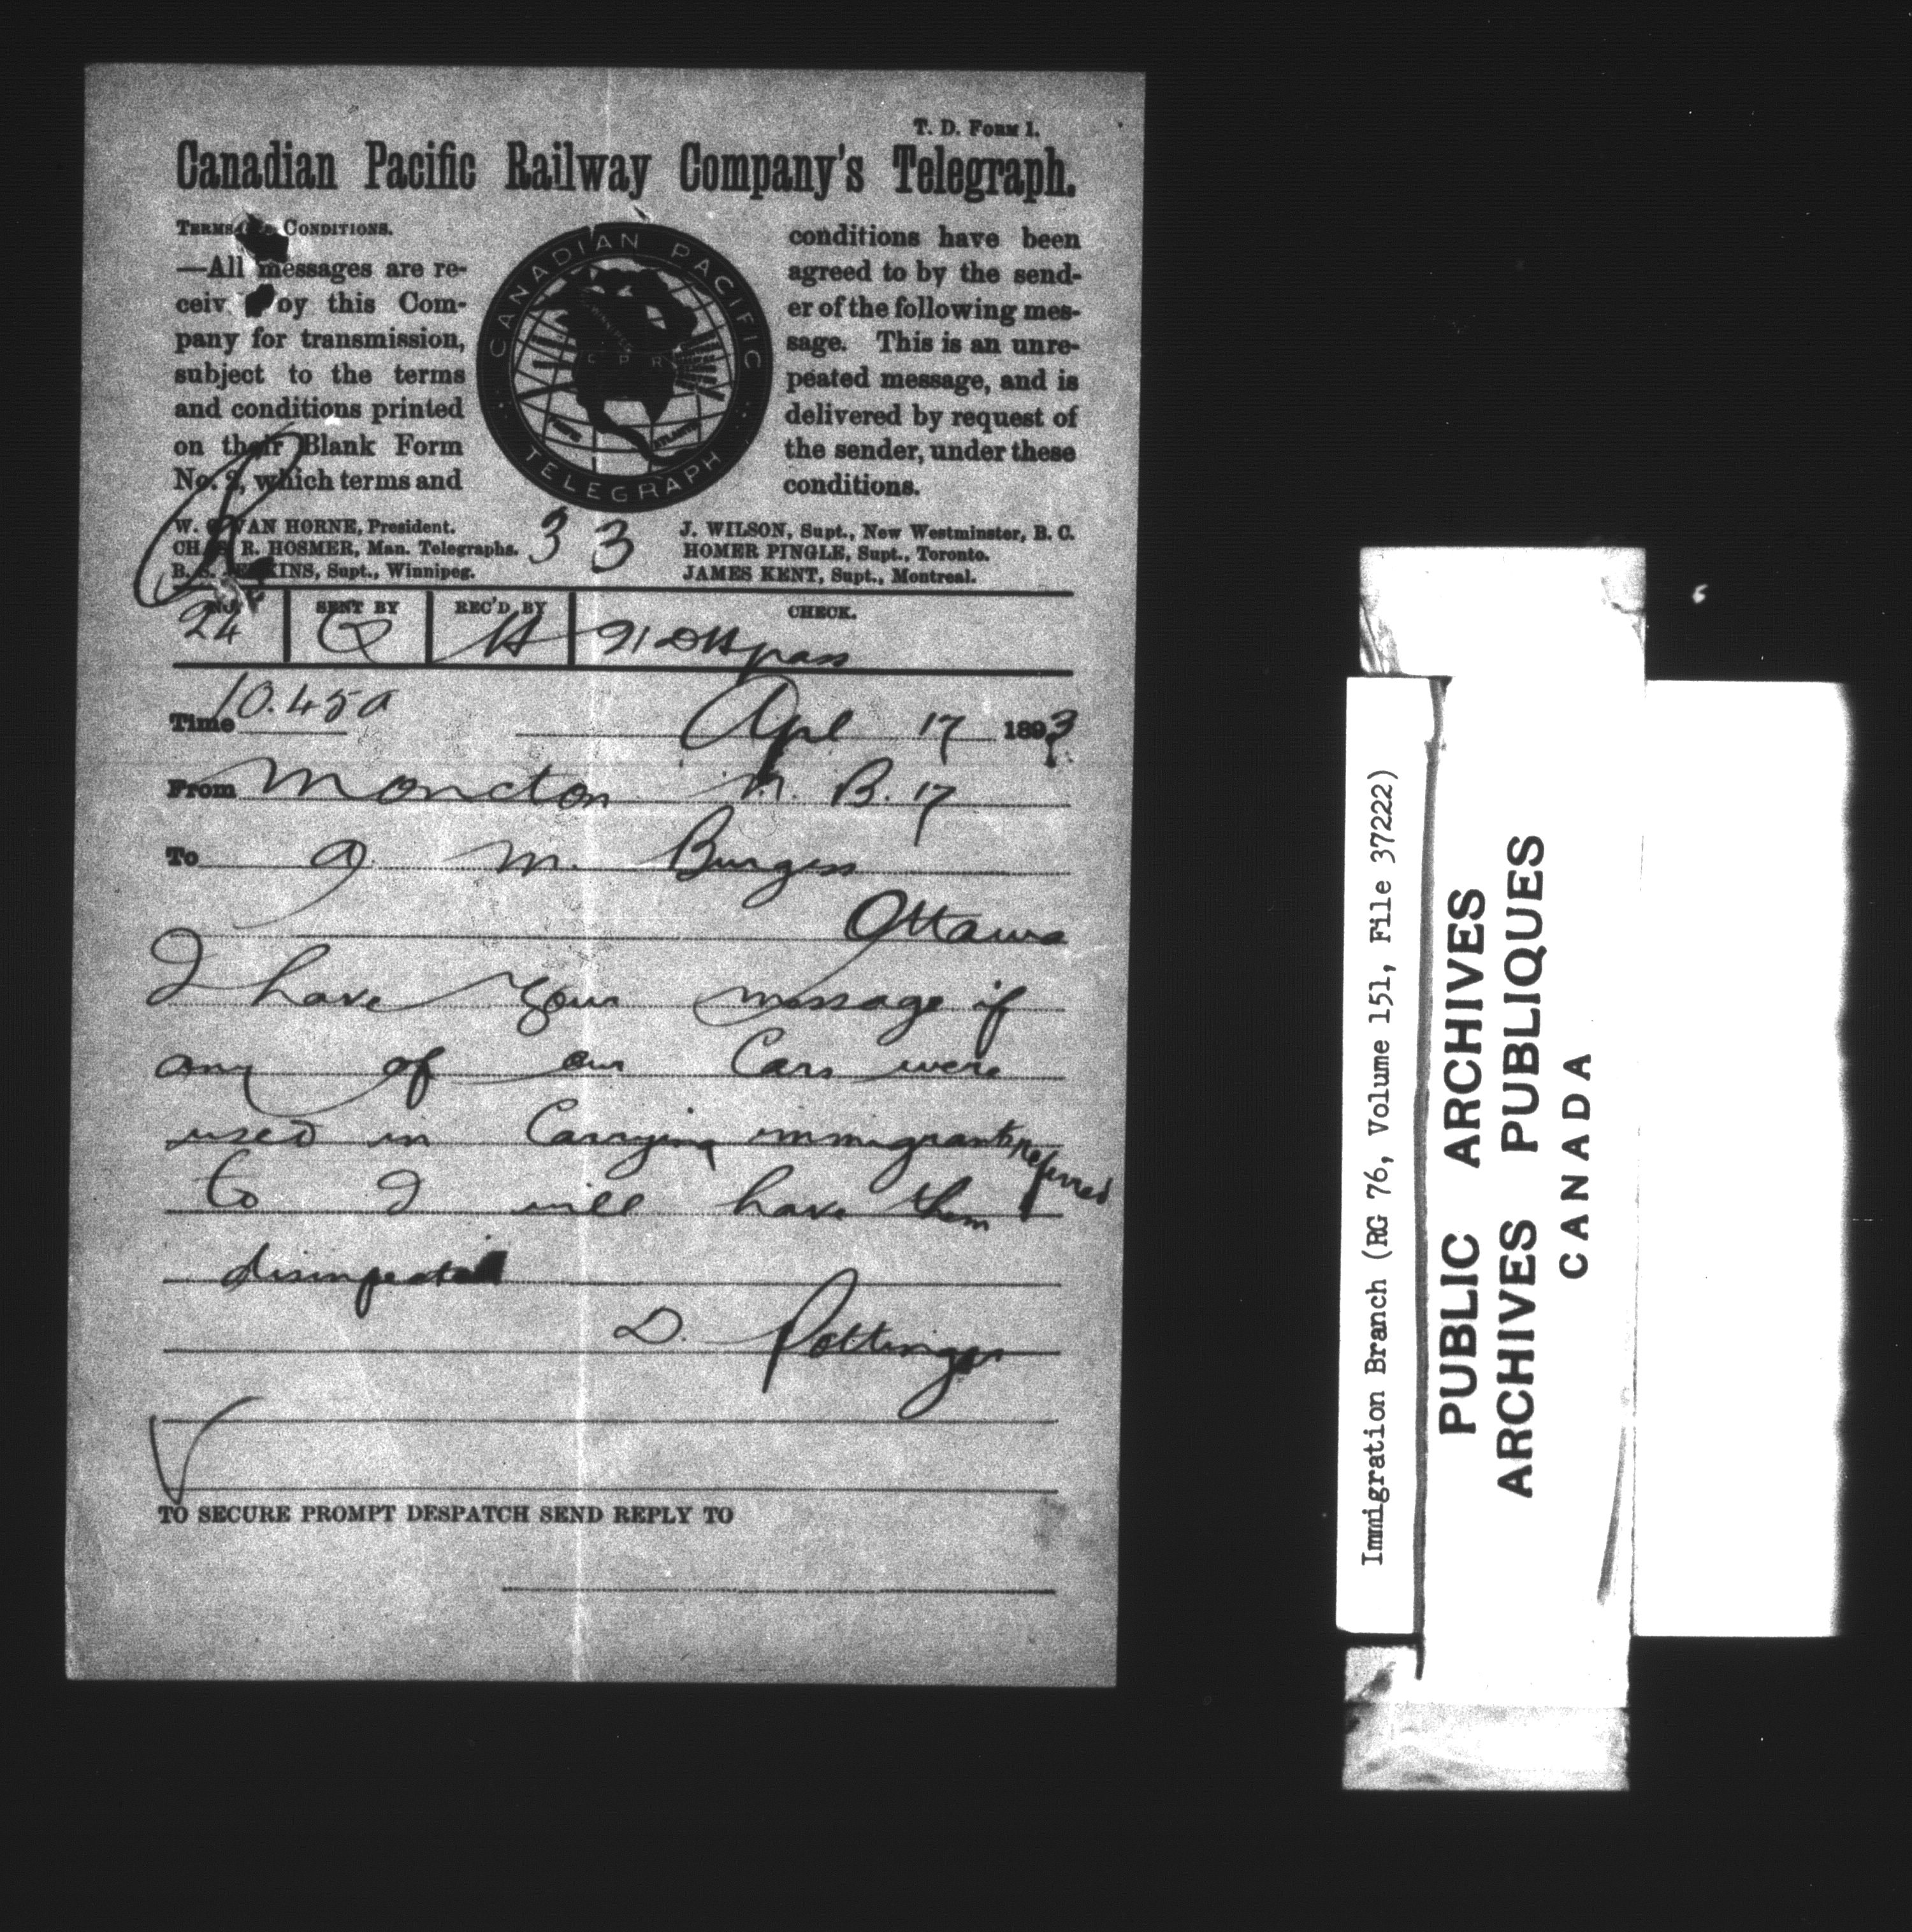 T. D. FORM 1.
Canadian Pacific Railway Company's Telegraph.
TERMS CONDITIONS.
—All messages are re-
ceiv by this Com-
pany for transmission,
subject to the terms
and conditions printed
on their Blank Form
No. 2, which terms and
CANADIAN PACIFIC
WINNIPEG
C P R
ATLANTIC
TELEGRAPH
conditions have been
agreed to by the send-
er of the following mes-
sage. This is an unre-
peated message, and is
delivered by request of
the sender, under these
conditions.
W. C. VAN HORNE, President.
CHAS. R. HOSMER, Man. Telegraphs.
B. S. JENKINS, Supt., Winnipeg.
33
J. WILSON, Supt., New Westminster, B. C.
HOMER PINGLE, Supt., Toronto.
JAMES KENT, Supt., Montreal.
NO. SENT BY REC'D BY CHECK.
24 21 DH pass
Time 10.45a Apl 17 1893
From Moncton N. B. 17
To A M. Burgess
Ottawa
I have your message if
any of our Cars were
used in Carrying immigrants referred
to I will have them
disinfected
D. Pottinger
TO SECURE PROMPT DESPATCH SEND REPLY TO
Immigration Branch (RG 76, Volume 151, File 37222)
PUBLIC ARCHIVES
ARCHIVES PUBLIQUES
CANADA